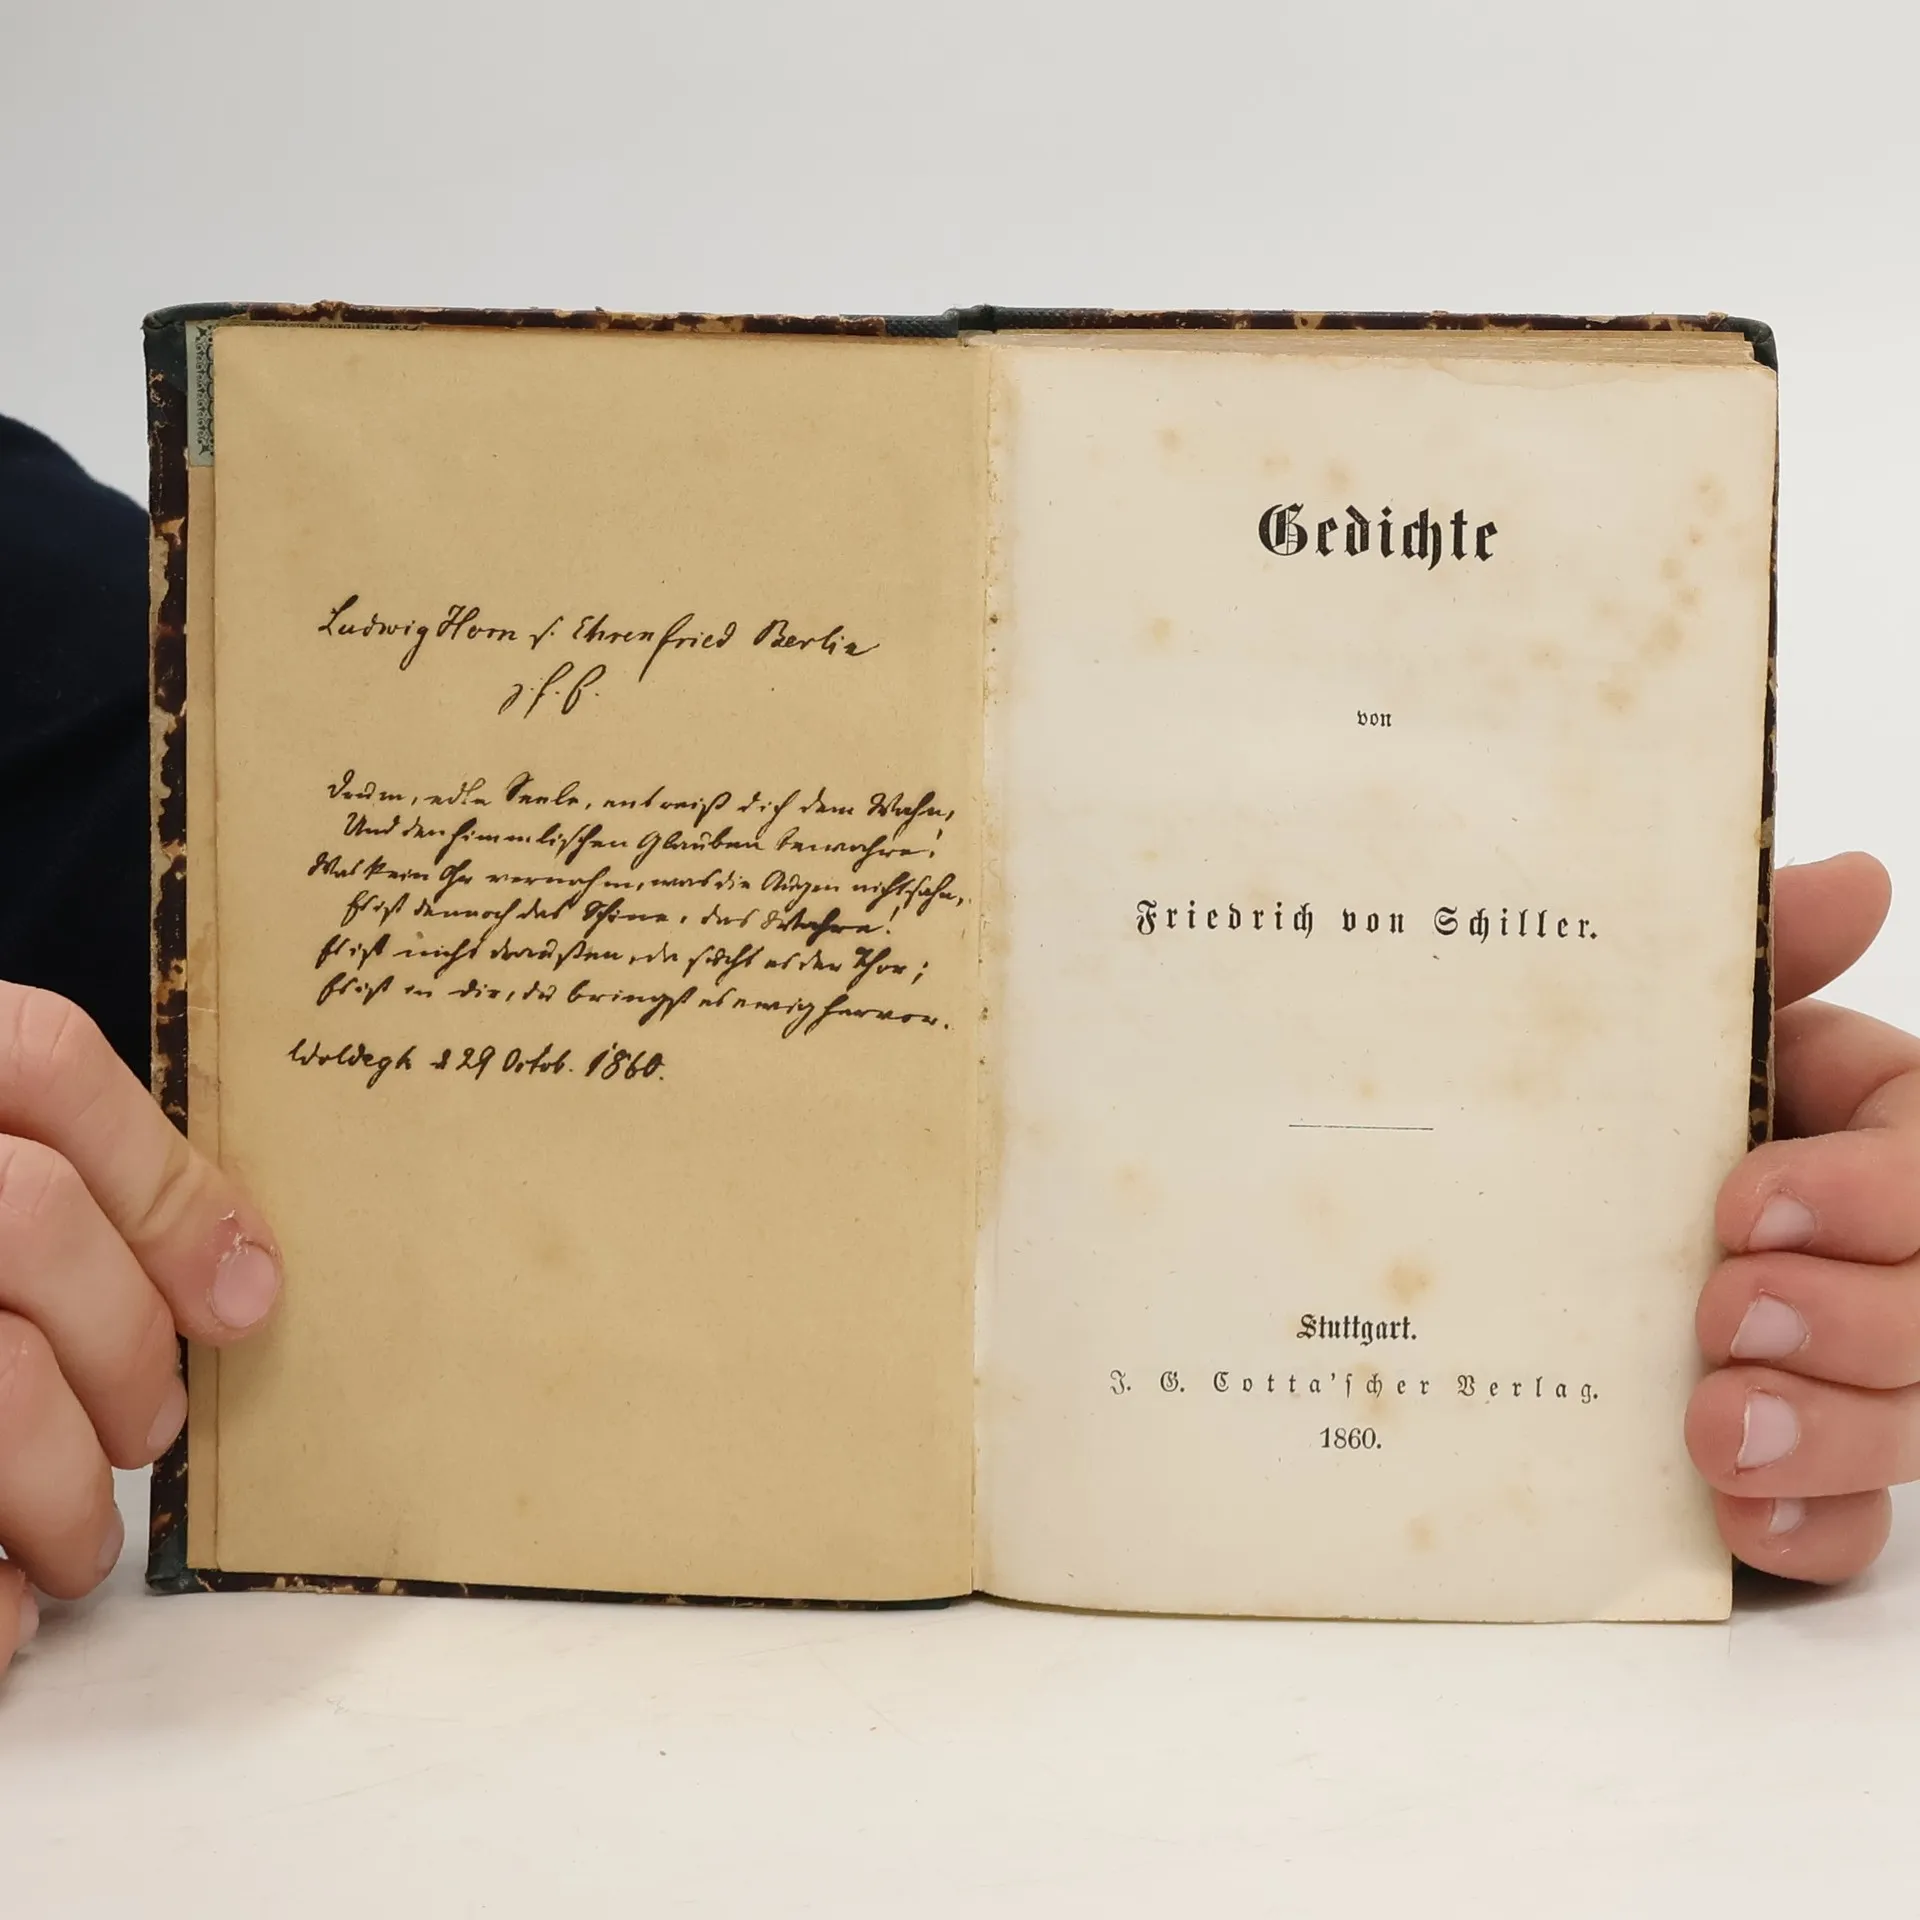 Ludwig Horn s. Ehrenfried Berlin
z. f. E.
Drum, edle Seele, entreiß dich dem Wahn,
Und den himmlischen Glauben bewahre!
Was kein Ohr vernahm, was die Augen nicht sahn,
Es ist dennoch das Schöne, das Wahre!
Es ist nicht draußen, da sucht es der Thor;
Es ist in dir, du bringst es ewig hervor.
Woldegk d 29 Octob. 1860.
Gedichte
von
Friedrich von Schiller.
Stuttgart.
J. G. Cotta'scher Verlag.
1860.